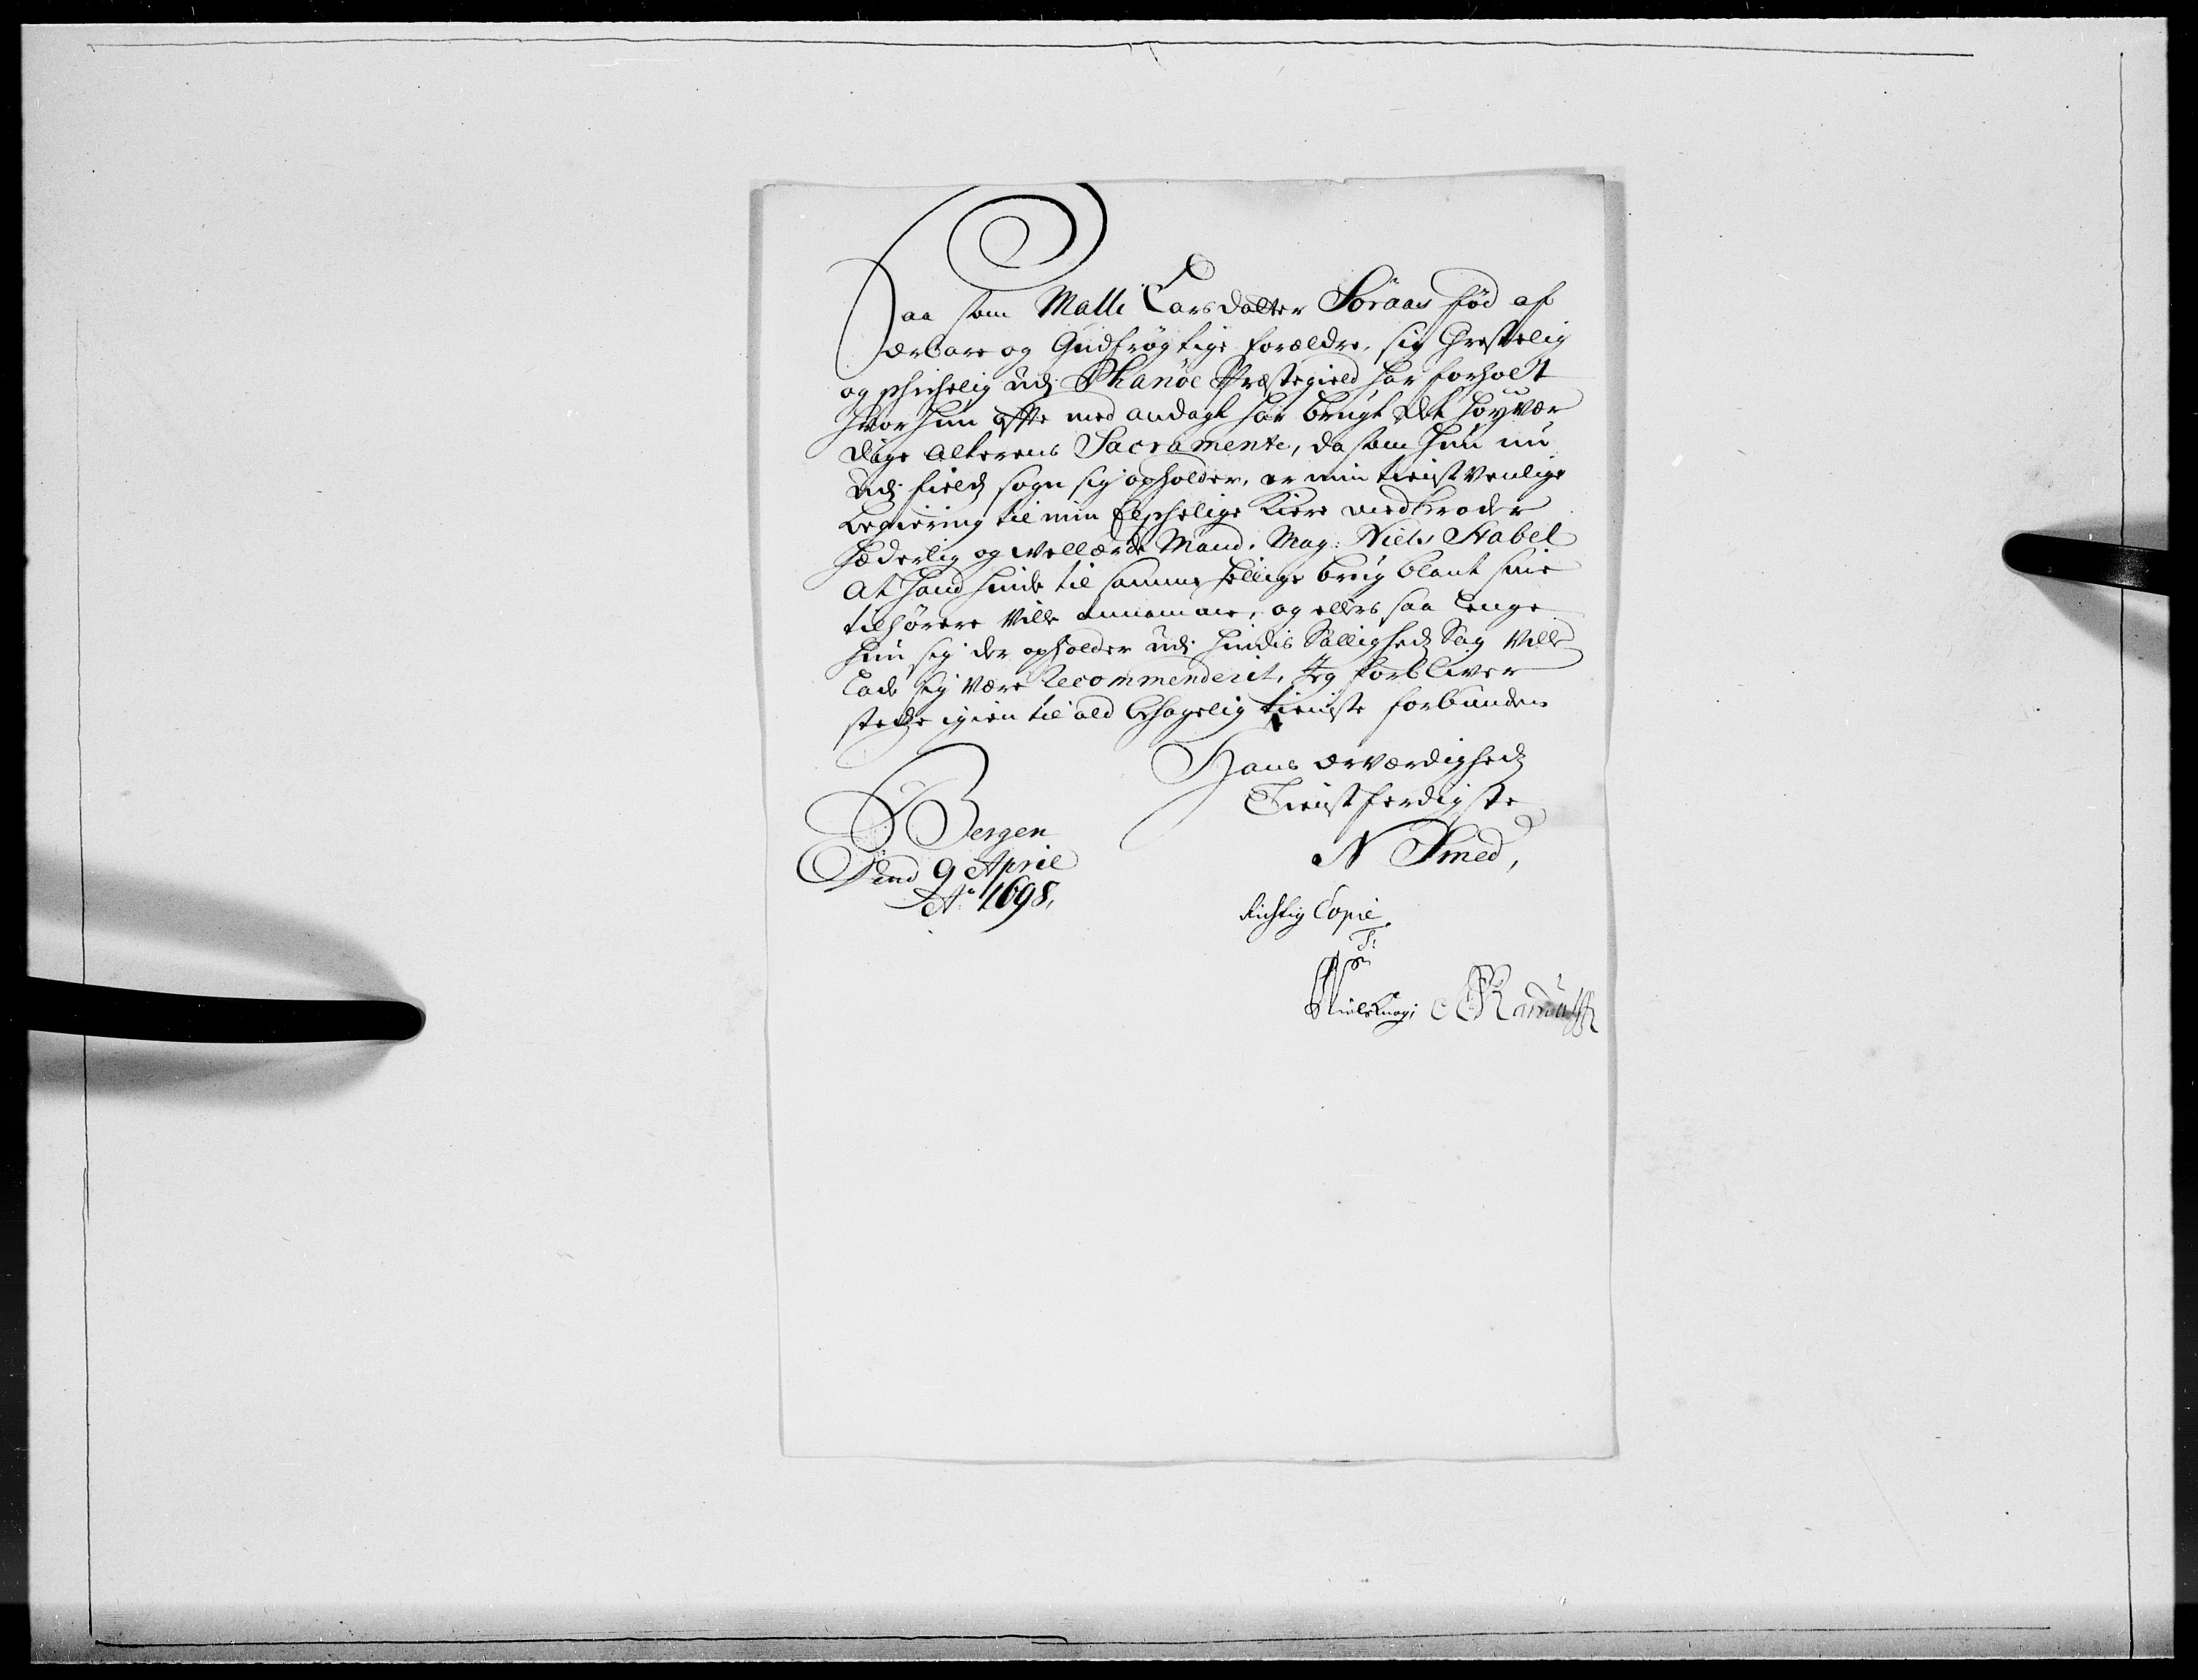 Saa som Malli Larsdatter Søraas fød af
ærbare og Gudfrøgtige forældre, sig Chrestelig
og schichelig udj Phanöe Præstegield har forholt
hvor hun offte med andagt har brugt det høyvær
dige alterens Sacramente, da som hun nu
udj field sogn sig opholder, er min tienstvenlige
begiering til min Elschelige kiere medbroder
hæderlig og wellærde Mand, Mag: Niels Stabel
at hand hinde til samme hellige brug blant sine
tilhørere ville annamme, og ellers saa lenge
hun sig der opholder udj hindis Sallighedz Sag ville
lade sig være Recommenderit, Jeg forbliver
stedtze igien til ald behagelig tieniste forbunden
Hans ærværdighedz
Tienstferdigste
N Smed,
Bergen
Dend 9 April
Aº 1698,
Richtig Copie
T:
Niels Knag; Randulff